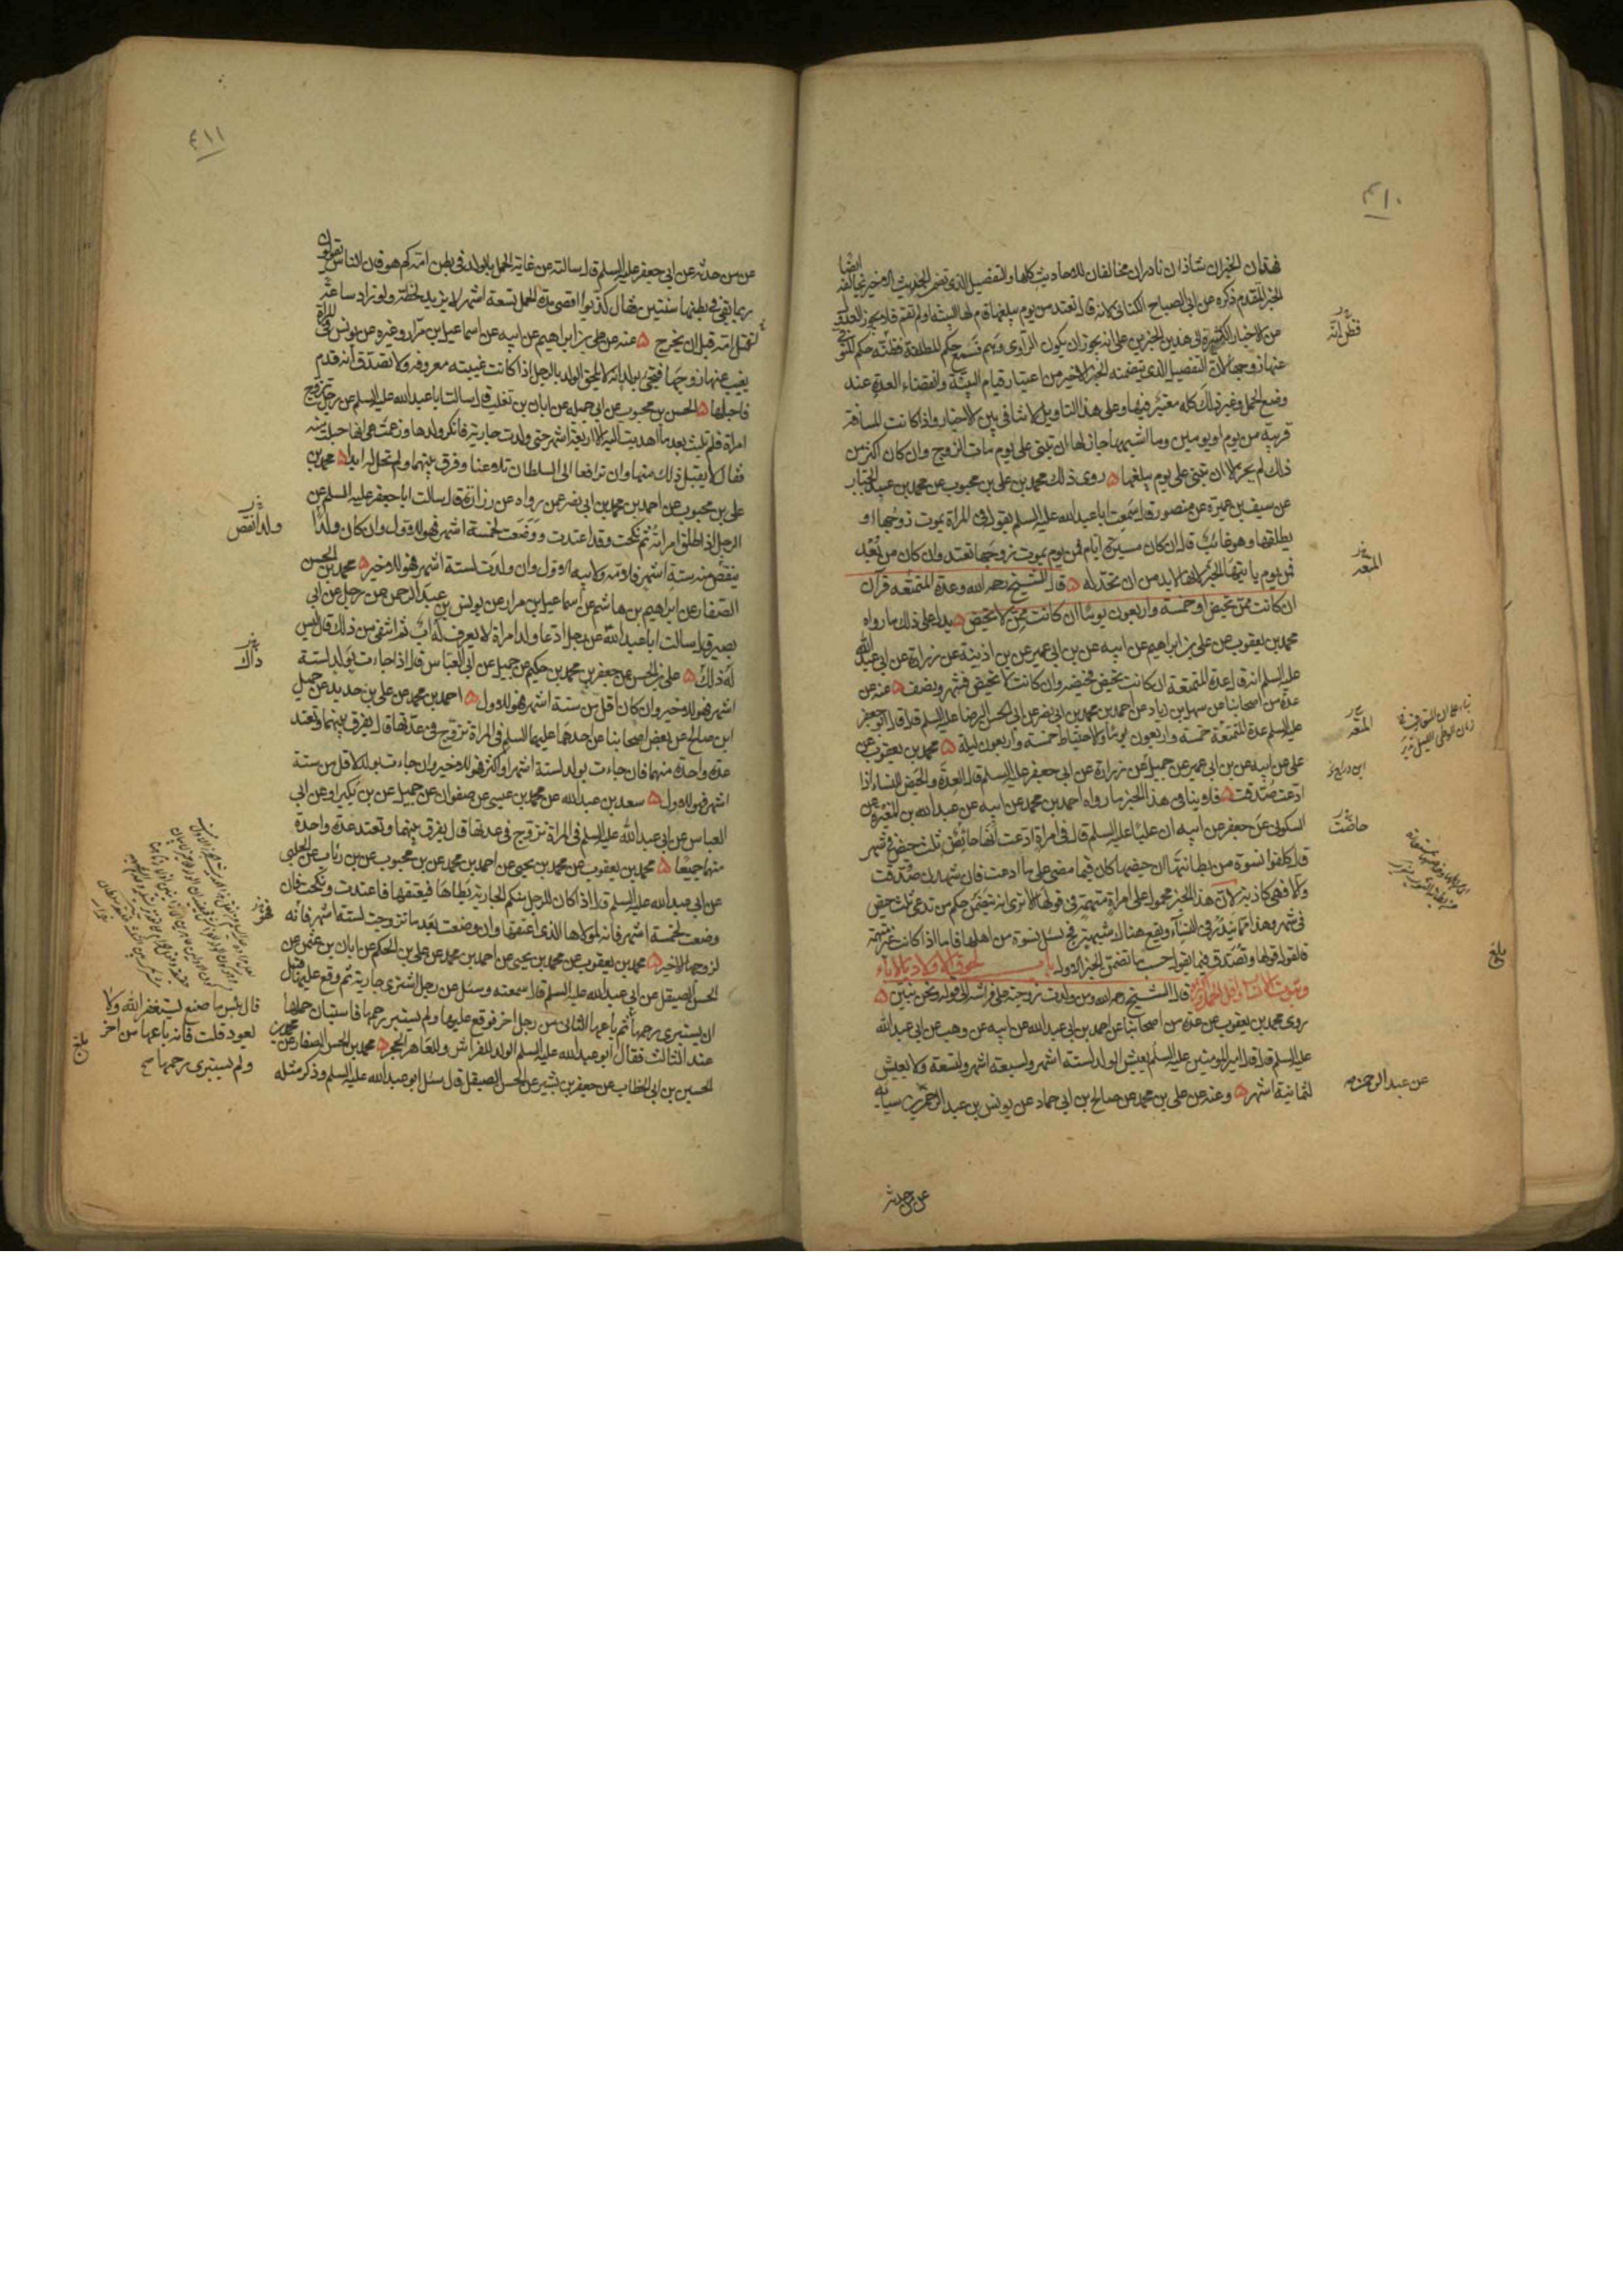 ٤١٠
فهذان الخبران شاذان نادران مخالفان للاحاديث كلها والتفصيل الذي تضمن الحديث الاخير يخالفه ايضا
الخبر المتقدم ذكره عن ابي الصباح الكناني لانه قال تعتد من يوم يبلغها قام لها البينة او لم تقم فلا يجوز العدول
من الاخبار الكثيرة الى هذين الخبرين على انه يجوز ان يكون الراوي وهم فسمع حكم المطلقة فظنه حكم المتوفى
عنها زوجها لان التفصيل الذي يتضمنه الخبر الاخير من اعتبار قيام البينة وانقضاء العدة عند
وضع الحمل وغير ذلك كله معتبر فيها وعلى هذا التاويل لا تنافي بين الاخبار واذا كانت المسافة
قريبة من يوم او يومين وما اشبهها جاز لها ان تبني على يوم مات الزوج وان كان اكثر من
ذلك لم يجز الا ان تبني على يوم يبلغها روى ذلك محمد بن علي بن محبوب عن محمد بن عبد الجبار
عن سيف بن عميرة عن منصور قال سمعت ابا عبد الله عليه السلم يقول في المراة يموت زوجها او
يطلقها وهو غائب قال ان كان مسيرة ايام فمن يوم يموت زوجها تعتد وان كان من بعد
فمن يوم ياتيها الخبر لانها لا بد من ان تحد له قال الشيخ رحمه الله وعدة المتمتعة قرآن
ان كانت ممن تحيض او خمسة واربعون يوما ان كانت ممن لا تحيض يدل على ذلك ما رواه
محمد بن يعقوب عن علي بن ابراهيم عن ابيه عن بن ابي عمير عن بن اذينة عن زرارة عن ابي عبد الله
عليه السلم انه قال عدة المتمتعة ان كانت تحيض فحيضة وان كانت لا تحيض فشهر ونصف عنه عن
عدة من اصحابنا عن سهل بن زياد عن احمد بن محمد بن ابي نصر عن ابي الحسن الرضا عليه السلم قال قال ابو جعفر
عليه السلم عدة المتمتعة خمسة واربعون يوما والاحتياط خمسة واربعون ليلة محمد بن يعقوب عن
علي عن ابيه عن بن ابي عمير عن جميل عن زرارة عن ابي جعفر عليه السلم قال العدة والحيض للنساء اذا
ادعت صدقت فلا ينافي هذا الخبر ما رواه احمد بن محمد عن ابيه عن عبد الله بن المغيرة عن
السكوني عن جعفر عن ابيه ان عليا عليه السلم قال في امراة ادعت انها حائض ثلث حيض في شهر
قال كلفوا نسوة من بطانتها ان حيضها كان فيما مضى على ما ادعت فان شهدن صدقت
والا فهي كاذبة لان هذا الخبر محمول على امراة متهمة في قولها الا ترى انه يتضمن حكم من تدعي ثلث حيض
في شهر وهذا مما يندر في النساء ويقع هناك شبهة فحينئذ يسئل نسوة من اهلها فاما اذا كانت غير متهمة
فالقول قولها وتصدق فيما تقول حسب ما تضمن الخبر الاول باب لحوق الاولاد بالاباء
وثبوت الانساب واقل الحمل واكثره قال الشيخ رحمه الله ومن ولدت زوجته على فراشه الى قوله ونحن نبين
روى محمد بن يعقوب عن عدة من اصحابنا عن احمد بن ابي عبد الله عن ابيه عن وهب عن ابي عبد الله
عليه السلم قال قال امير المومنين عليه السلم يعيش الولد لستة اشهر ولسبعة اشهر ولتسعة ولا يعيش
لثمانية اشهر وعنه عن علي بن محمد عن صالح بن ابي حماد عن يونس بن عبد الرحمن بن سيابة
فظن انه
المتعة
المتعة
حاضت
بلغ
عن عبد الرحمن
عن من حدثه
٤١١
عن من حدثه عن ابي جعفر عليه السلم قال سالته عن غاية الحمل بالولد في بطن امه كم هو فان الناس يقولون
ربما بقي في بطنها سنتين فقال كذبوا اقصى مدة الحمل تسعة اشهر لا يزيد لحظة ولو زاد ساعة
لقتل امه قبل ان يخرج عنه عن علي بن ابراهيم عن ابيه عن اسماعيل بن مرار وغيره عن يونس في المراة
يغيب عنها زوجها فتجيء بولد انه لا يلحق الولد بالرجل اذا كانت غيبته معروفة ولا تصدق انه قدم
فاحبلها الحسن بن محبوب عن ابي جميله عن ابان بن تغلب قال سالت ابا عبد الله عليه السلم عن رجل تزوج
امراة فلم تلبث بعد ما اهديت اليه الا اربعة اشهر حتى ولدت جارية فانكر ولدها وزعمت هي انها حبلت منه
فقال لا يقبل ذلك منها وان ترافعا الى السلطان تلاعنا وفرق بينهما ولم تحل له ابدا محمد بن
علي بن محبوب عن احمد بن محمد بن ابي نصر عن من رواه عن زرارة قال سالت ابا جعفر عليه السلم عن
الرجل اذا طلق امراته ثم نكحت وقد اعتدت ووضعت لخمسة اشهر فهو للاول وان كان ولدا
ينقص من ستة اشهر فلامه ولابيه الاول وان ولدت لستة اشهر فهو للاخير محمد بن الحسن
الصفار عن ابراهيم بن هاشم عن اسماعيل بن مرار عن يونس بن عبد الرحمن عن رجل عن ابي
بصير قال سالت ابا عبد الله عن رجل ادعا ولد امراة لا يعرف له اب ثم انتفى من ذلك قال ليس
له ذلك علي بن الحسن عن جعفر بن محمد بن حكيم عن جميل عن ابي العباس قال اذا جاءت بولد لستة
اشهر فهو للاخير وان كان اقل من ستة اشهر فهو للاول احمد بن محمد عن علي بن حديد عن جميل
ابن صالح عن بعض اصحابنا عن احدهما عليهما السلم في المراة تزوج في عدتها قال يفرق بينهما وتعتد
عدة واحدة منهما فان جاءت بولد لستة اشهر او اكثر فهو للاخير وان جاءت بولد لاقل من ستة
اشهر فهو للاول سعد بن عبد الله عن محمد بن عيسى عن صفوان عن جميل عن بن بكير او عن ابي
العباس عن ابي عبد الله عليه السلم في المراة تزوج في عدتها قال يفرق بينهما وتعتد عدة واحدة
منهما جميعا محمد بن يعقوب عن محمد بن يحيى عن احمد بن محمد عن بن محبوب عن بن رئاب عن الحلبي
عن ابي عبد الله عليه السلم قال اذا كان للرجل منكم الجارية يطاها فيعتقها فاعتدت ونكحت فان
وضعت لخمسة اشهر فانه لمولاها الذي اعتقها وان وضعت بعد ما تزوجت لستة اشهر فانه
لزوجها الاخير محمد بن يعقوب عن محمد بن يحيى عن احمد بن محمد عن علي بن الحكم عن ابان بن عثمن عن
الحسن الصيقل عن ابي عبد الله عليه السلم قال سمعته وسئل عن رجل اشترى جارية ثم وقع عليها قبل
ان يستبرى رحمها ثم باعها الثاني من رجل اخر فوقع عليها ولم يستبر رحمها فاستبان حملها
عند الثالث فقال ابو عبد الله عليه السلم الولد للفراش وللعاهر الحجر محمد بن الحسن الصفار عن محمد بن
الحسين بن ابي الخطاب عن جعفر بن بشير عن الحسن الصيقل قال سئل ابو عبد الله عليه السلم وذكر مثله
ولدا نقص
ذاك
قال بئس ما صنع يستغفر الله ولا
يعود قلت فانه باعها من اخر
ولم يستبرى رحمها صح
بلغ